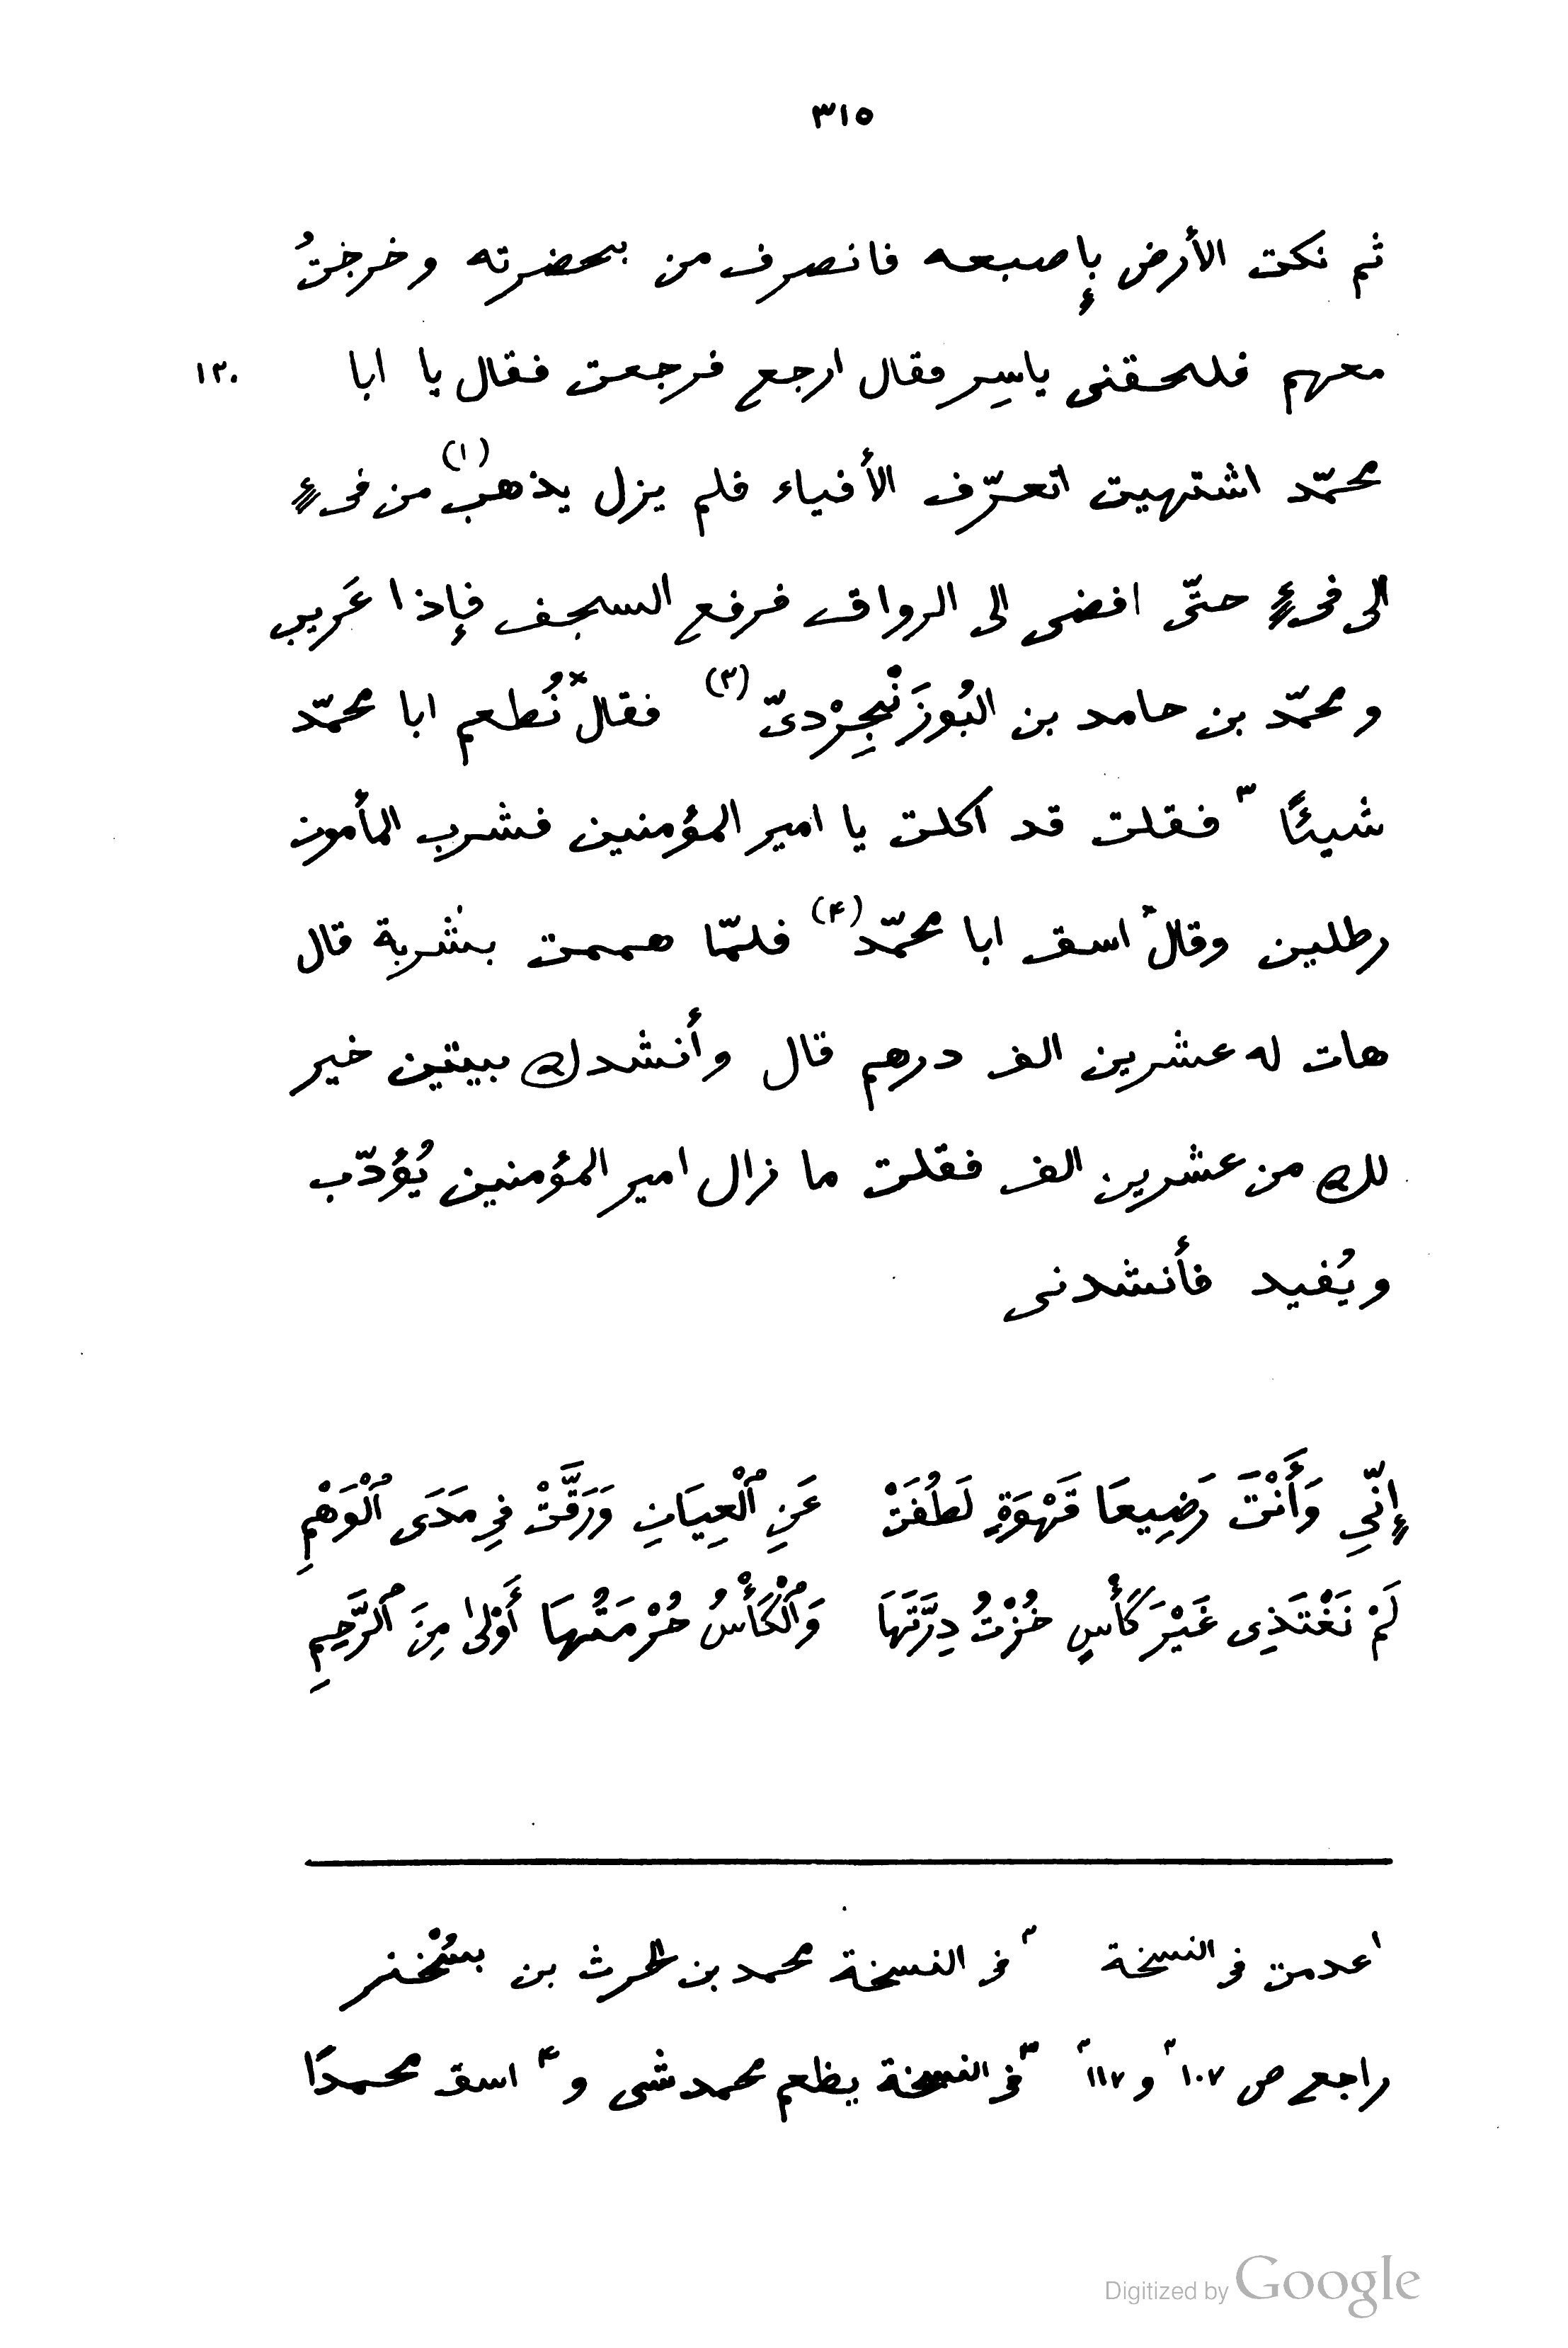 ٣١٥
ثم نكت الأرض بإصبعه فانصرف من بحضرته وخرجتُ
معهم فلحقنى ياسِر فقال ارجع فرجعت فقال يا ابا ١٢٠
محمّد اشتهيت اتعرّف الأفياء فلم يزل يذهب(١) من فىءٍ
الى فىءٍ حتّى افضى الى الرواق فرفع السجف فإذا عَريب
ومحمّد بن حامد بن البُوزَنْجِرْدىّ(٢) فقال ٣نُطعم ابا محمّد
شيئًا٣ فقلت قد اكلت يا امير المؤمنين فشرب المأمون
رطلين وقال ٤اسق ابا محمّد(٤) فلمّا هممت بشربة قال
هات له عشرين الف درهم قال وأنشدك بيتين خير
لك من عشرين الف فقلت ما زال امير المؤمنين يُؤدّب
ويُفيد فأنشدنى
إِنِّي وَأَنْتَ رَضِيعَا قَهْوَةٍ لَطُفَتْ عَنِ ٱلْعِيَانِ وَرَقَّتْ فِي مَدَى ٱلْوَهْمِ
لَمْ نَغْتَذِى غَيْرَ كَأْسٍ حُزْتُ دِرَّتَهَا وَٱلْكَأْسُ حُرْمَتُهَا أَوْلىٰ مِنَ ٱلرَّحِمِ
١ عدمت فى النسخة ٢ فى النسخة محمد بن الحرث بن بسُخْنر
راجع ص ١٠٧٢ و ١١٧٢ ٣ فى النسخة يظعم محمد شى و٤ اسق محمدًا
Digitized by Google